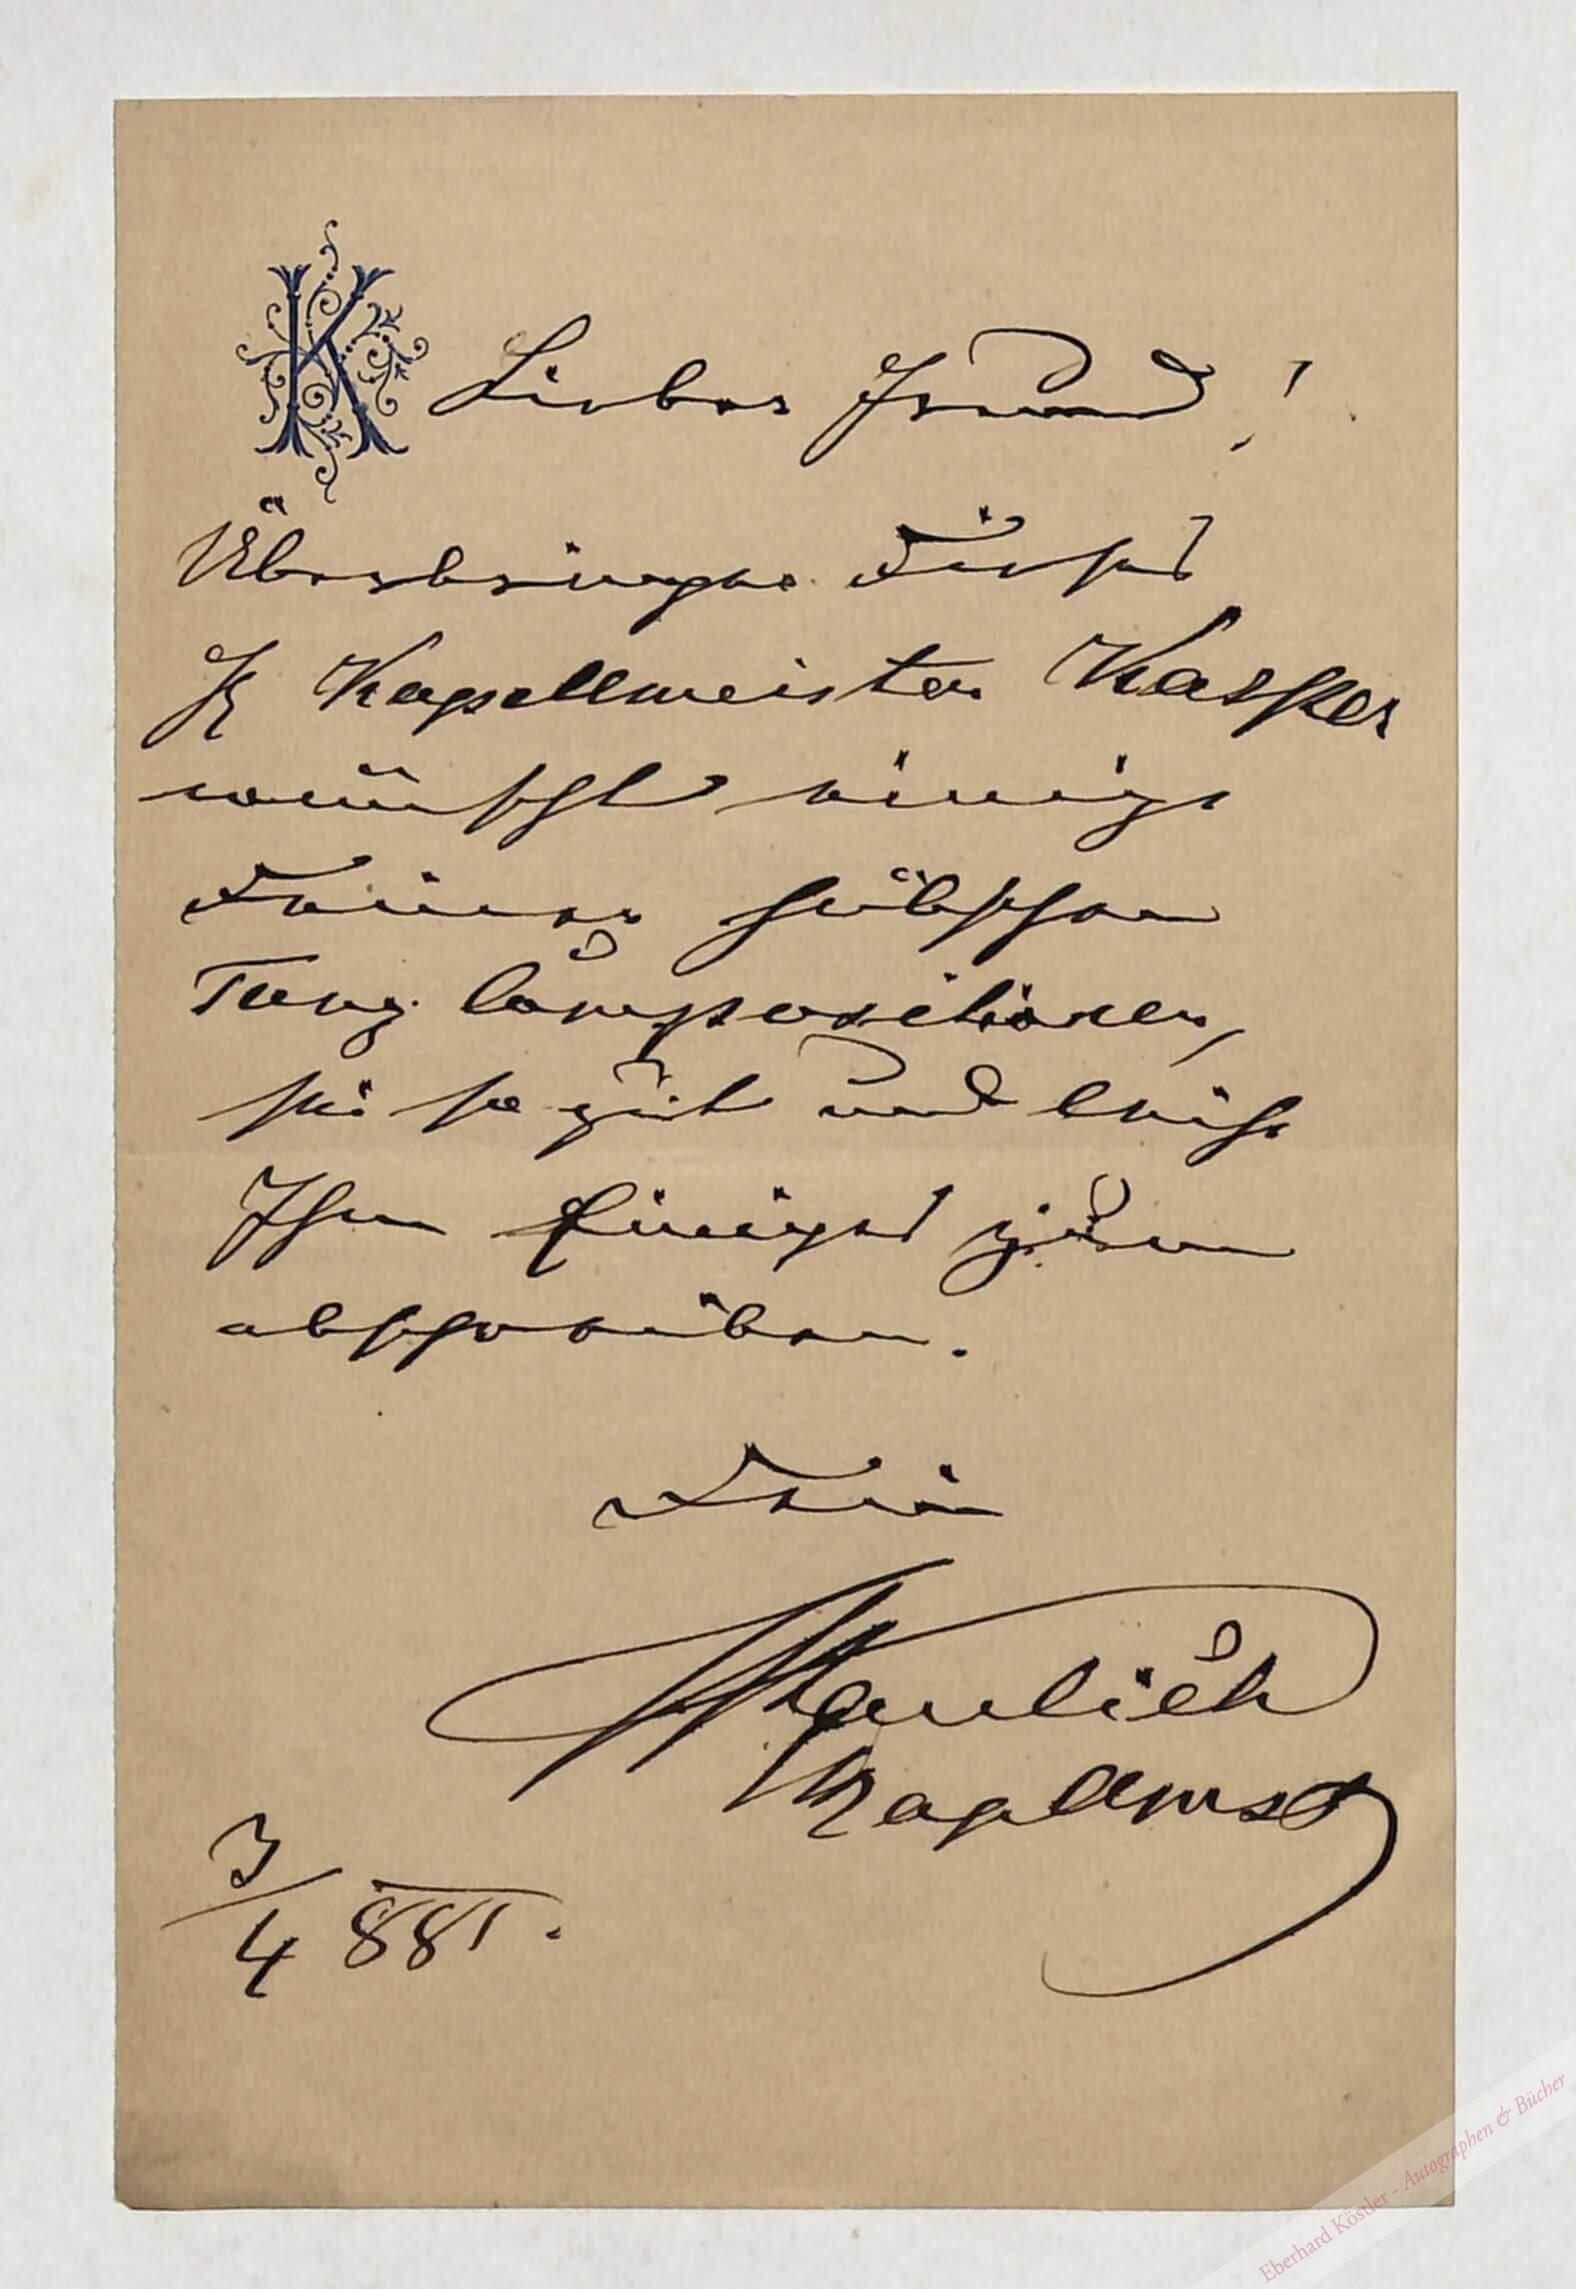 K
Lieber Freund!
Überbringer Dieses
H Kapellmeister Kasper
wünscht einige
Deiner hübschen
Tanz Compositionen,
sei so gut und leihe
Ihm Einiges zum
abschreiben.
Dein
Kaulich
Kapellmst
3/4 881.
Eberhard Köstler - Autographen & Bücher